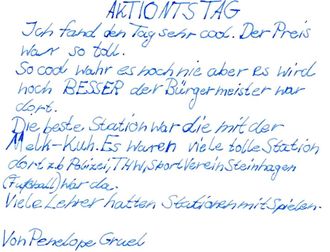 AKTIONTSTAG
Ich fand den Tag sehr cool. Der Preis
war so toll.
So cool wahr es noch nie aber es wird
noch BESSER der Bürgermeister war
dort.
Die beste Station war die mit der
Melk-Kuh. Es waren viele tolle Station
dort z.b Polizei, THW, Sport Verein Steinhagen
(Fußball) war da.
Viele Lehrer hatten Stationen mit Spielen.
Von Penelope Gruel